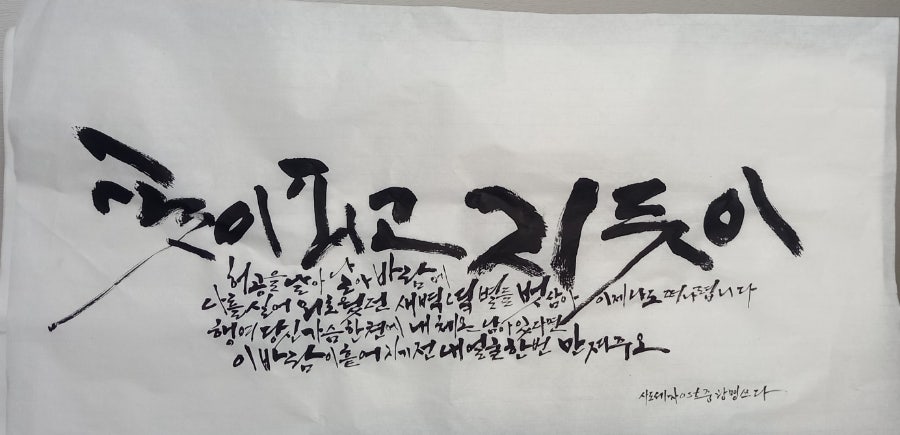 꽃이 피고 지듯이
허공을 날아 날아 바람에
나를 실어 외로웠던 새벽녘 별들 벗삼아 이제 나도 떠나렵니다
행여 당신 가슴 한켠에 내 체온 남아있다면
이 바람이 흩어지기 전 내 얼굴 한번 만져주오
사도세자 OST 중 함평쓰다